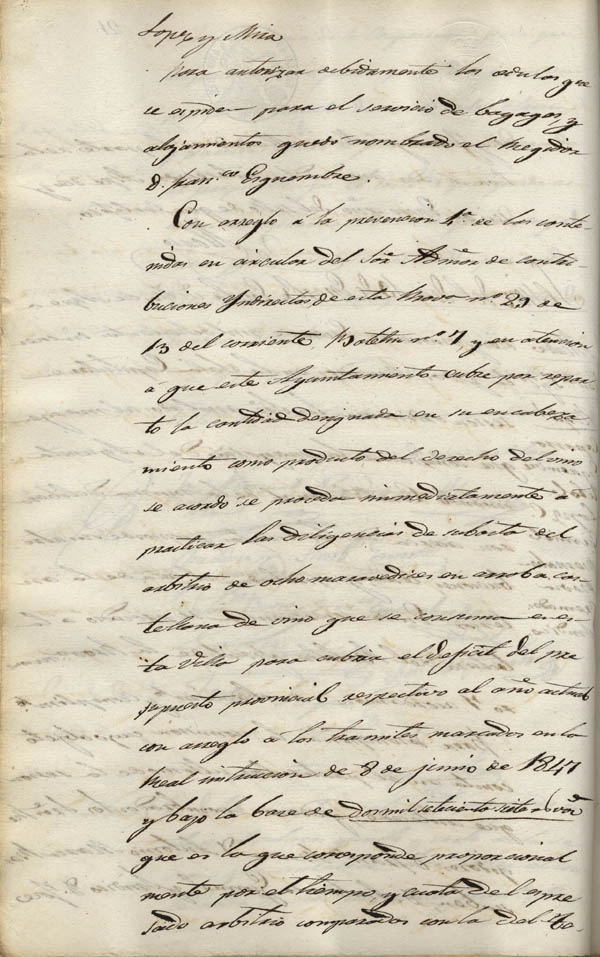 Lopez y Mira
Para autorizar debidamente las cedulas que
se espiden para el servicio de bagages y
alojamientos quedó nombrado el Regidor
D. Fran.co Esquembre.
Con arreglo á la prevencion 4.a de las conte-
nidas en circular del Sor. Admor. de contri-
buciones Yndirectas de esta Prova. no. 29 de
13 del corriente, Boletin no. 7 y en atencion
á que este Ayuntamiento cubre por repar-
to la cantidad designada en su encabeza-
miento como producto del derecho del vino
se acordó se proceda inmediatamente a
practicar las diligencias de subasta del
arbitrio de ocho maravedises en arroba cas-
tellana de vino que se consuma en es-
ta Villa para cubrir el deficit del pre-
supuesto provincial respectivo al año actual
con arreglo á los tramites marcados en la
Real instruccion de 8 de junio de 1847
y bajo la base de dos mil setecientos siete rs. von.
que es la que corresponde proporcional
mente por el tiempo, y cuota del espre-
sado arbitrio comparados con la del